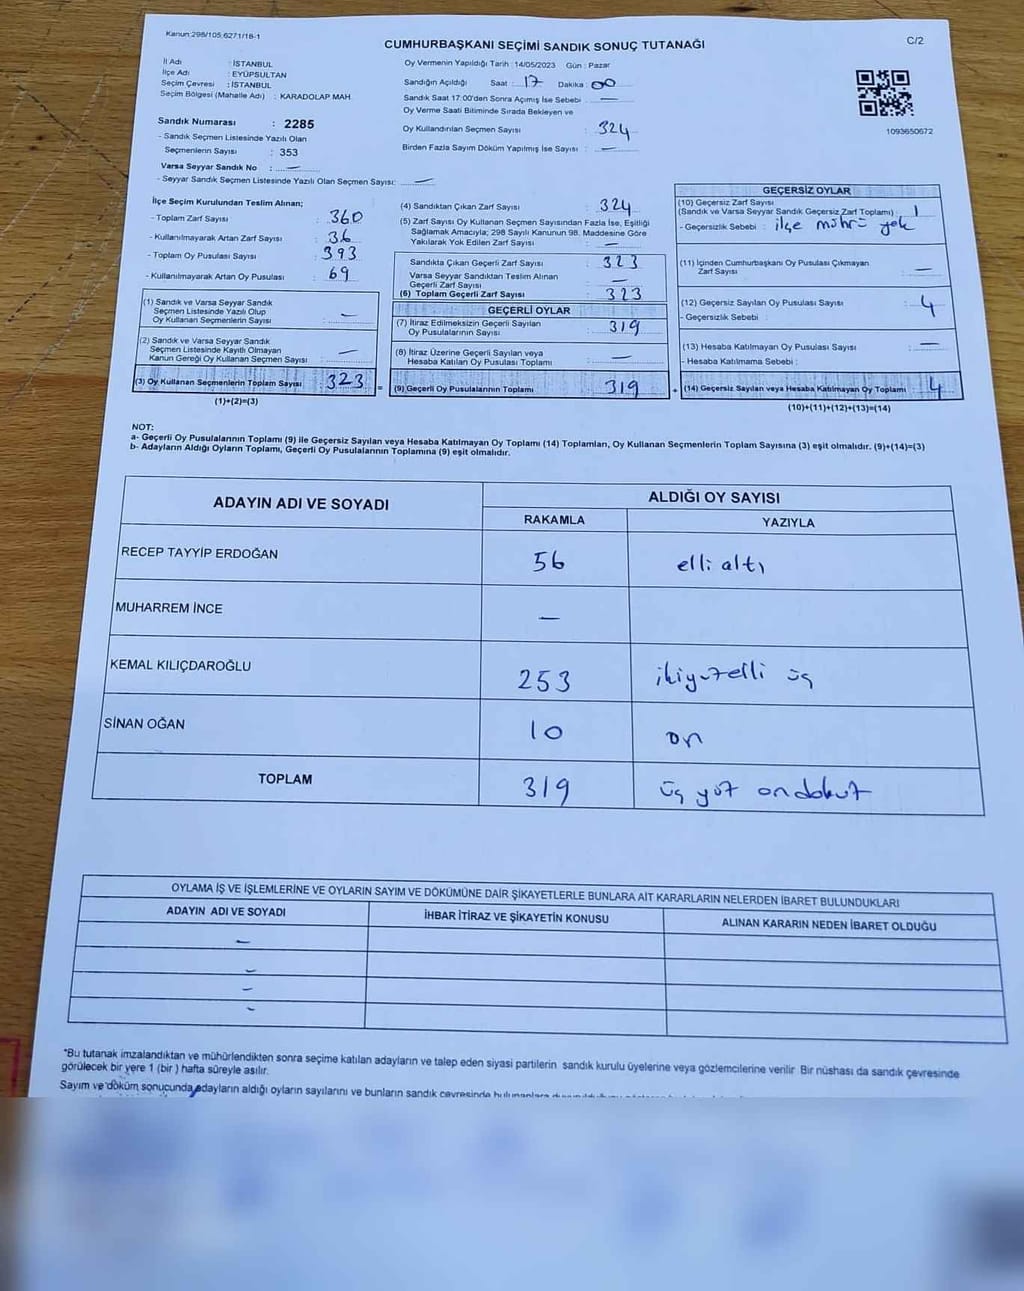 Kanun:298/105,6271/18-1
CUMHURBAŞKANI SEÇİMİ SANDIK SONUÇ TUTANAĞI
C/2
İl Adı : İSTANBUL
İlçe Adı : EYÜPSULTAN
Seçim Çevresi : İSTANBUL
Seçim Bölgesi (Mahalle Adı) : KARADOLAP MAH.
Sandık Numarası : 2285
- Sandık Seçmen Listesinde Yazılı Olan
Seçmenlerin Sayısı : 353
Varsa Seyyar Sandık No : —
- Seyyar Sandık Seçmen Listesinde Yazılı Olan Seçmen Sayısı: —
Oy Vermenin Yapıldığı Tarih : 14/05/2023 Gün : Pazar
Sandığın Açıldığı Saat : 17 Dakika : 00
Sandık Saat 17:00'den Sonra Açılmış İse Sebebi : —
Oy Verme Saati Bitiminde Sırada Bekleyen ve
Oy Kullandırılan Seçmen Sayısı : 324
Birden Fazla Sayım Döküm Yapılmış İse Sayısı : —
1093650672
İlçe Seçim Kurulundan Teslim Alınan;
- Toplam Zarf Sayısı : 360
- Kullanılmayarak Artan Zarf Sayısı : 36
- Toplam Oy Pusulası Sayısı : 393
- Kullanılmayarak Artan Oy Pusulası : 69
(1) Sandık ve Varsa Seyyar Sandık
Seçmen Listesinde Yazılı Olup
Oy Kullanan Seçmenlerin Sayısı : —
(2) Sandık ve Varsa Seyyar Sandık
Seçmen Listesinde Kayıtlı Olmayan
Kanun Gereği Oy Kullanan Seçmen Sayısı : —
(3) Oy Kullanan Seçmenlerin Toplam Sayısı : 323 =
(1)+(2)=(3)
(4) Sandıktan Çıkan Zarf Sayısı : 324
(5) Zarf Sayısı Oy Kullanan Seçmen Sayısından Fazla İse, Eşitliği
Sağlamak Amacıyla; 298 Sayılı Kanunun 98. Maddesine Göre
Yakılarak Yok Edilen Zarf Sayısı : —
Sandıkta Çıkan Geçerli Zarf Sayısı : 323
Varsa Seyyar Sandıktan Teslim Alınan
Geçerli Zarf Sayısı : —
(6) Toplam Geçerli Zarf Sayısı : 323
GEÇERLİ OYLAR
(7) İtiraz Edilmeksizin Geçerli Sayılan
Oy Pusulalarının Sayısı : 319
(8) İtiraz Üzerine Geçerli Sayılan veya
Hesaba Katılan Oy Pusulası Toplamı : —
(9) Geçerli Oy Pusulalarının Toplamı : 319 +
GEÇERSİZ OYLAR
(10) Geçersiz Zarf Sayısı
(Sandık ve Varsa Seyyar Sandık Geçersiz Zarf Toplamı) : 1
- Geçersizlik Sebebi : ilçe mührü yok
(11) İçinden Cumhurbaşkanı Oy Pusulası Çıkmayan
Zarf Sayısı : —
(12) Geçersiz Sayılan Oy Pusulası Sayısı : 4
- Geçersizlik Sebebi :
(13) Hesaba Katılmayan Oy Pusulası Sayısı : —
- Hesaba Katılmama Sebebi :
(14) Geçersiz Sayılan veya Hesaba Katılmayan Oy Toplamı : 4
(10)+(11)+(12)+(13)=(14)
NOT:
a- Geçerli Oy Pusulalarının Toplamı (9) ile Geçersiz Sayılan veya Hesaba Katılmayan Oy Toplamı (14) Toplamları, Oy Kullanan Seçmenlerin Toplam Sayısına (3) eşit olmalıdır. (9)+(14)=(3)
b- Adayların Aldığı Oyların Toplamı, Geçerli Oy Pusulalarının Toplamına (9) eşit olmalıdır.
ADAYIN ADI VE SOYADI ALDIĞI OY SAYISI
RAKAMLA YAZIYLA
RECEP TAYYİP ERDOĞAN 56 elli altı
MUHARREM İNCE —
KEMAL KILIÇDAROĞLU 253 ikiyüzelli üç
SİNAN OĞAN 10 on
TOPLAM 319 üç yüz ondokuz
OYLAMA İŞ VE İŞLEMLERİNE VE OYLARIN SAYIM VE DÖKÜMÜNE DAİR ŞİKAYETLERLE BUNLARA AİT KARARLARIN NELERDEN İBARET BULUNDUKLARI
ADAYIN ADI VE SOYADI İHBAR İTİRAZ VE ŞİKAYETİN KONUSU ALINAN KARARIN NEDEN İBARET OLDUĞU
—
—
—
—
"Bu tutanak imzalandıktan ve mühürlendikten sonra seçime katılan adayların ve talep eden siyasi partilerin sandık kurulu üyelerine veya gözlemcilerine verilir. Bir nüshası da sandık çevresinde
görülecek bir yere 1 (bir) hafta süreyle asılır.
Sayım ve döküm sonucunda adayların aldığı oyların sayılarını ve bunların sandık çevresinde